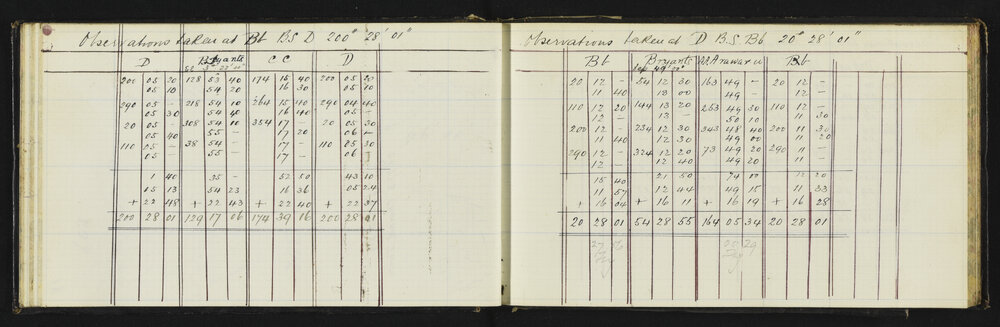 Observations taken at Bb BS D 200° 28' 01"
D Bryants C C D
200 05 20 128 53 40 174 15 40 200 05 20
05 10 54 20 16 30 05 10
290 05 – 218 54 10 264 15 40 290 04 40
05 30 54 40 16 40 05 –
20 05 – 308 54 10 354 17 – 20 05 30
05 40 55 – 17 20 06 –
110 05 – 38 54 – 17 – 110 05 30
05 – 55 – 17 – 06 –
1 40 35 – 52 50 43 10
05 13 54 23 16 36 05 24
+ 22 48 + 22 43 + 22 40 + 22 37
200 28 01 129 17 06 174 39 16 200 28 01
Observations taken at D B.S. Bb 20° 28' 01"
Bb Bryants Bb
20 12 – 54 12 30 163 49 – 20 12 –
11 40 13 00 49 – 12 –
110 12 20 144 13 20 253 49 30 110 12 –
12 – 13 – 50 10 11 30
200 12 – 234 12 30 343 48 40 200 11 30
11 40 12 30 49 00 11 20
290 12 – 324 12 20 73 49 20 290 11 –
12 – 12 40 49 20 11 –
15 40 21 50 74 00 12 20
11 57 12 44 49 15 11 33
+ 16 04 + 16 11 + 16 19 + 16 28
20 28 01 54 28 55 164 05 34 20 28 01